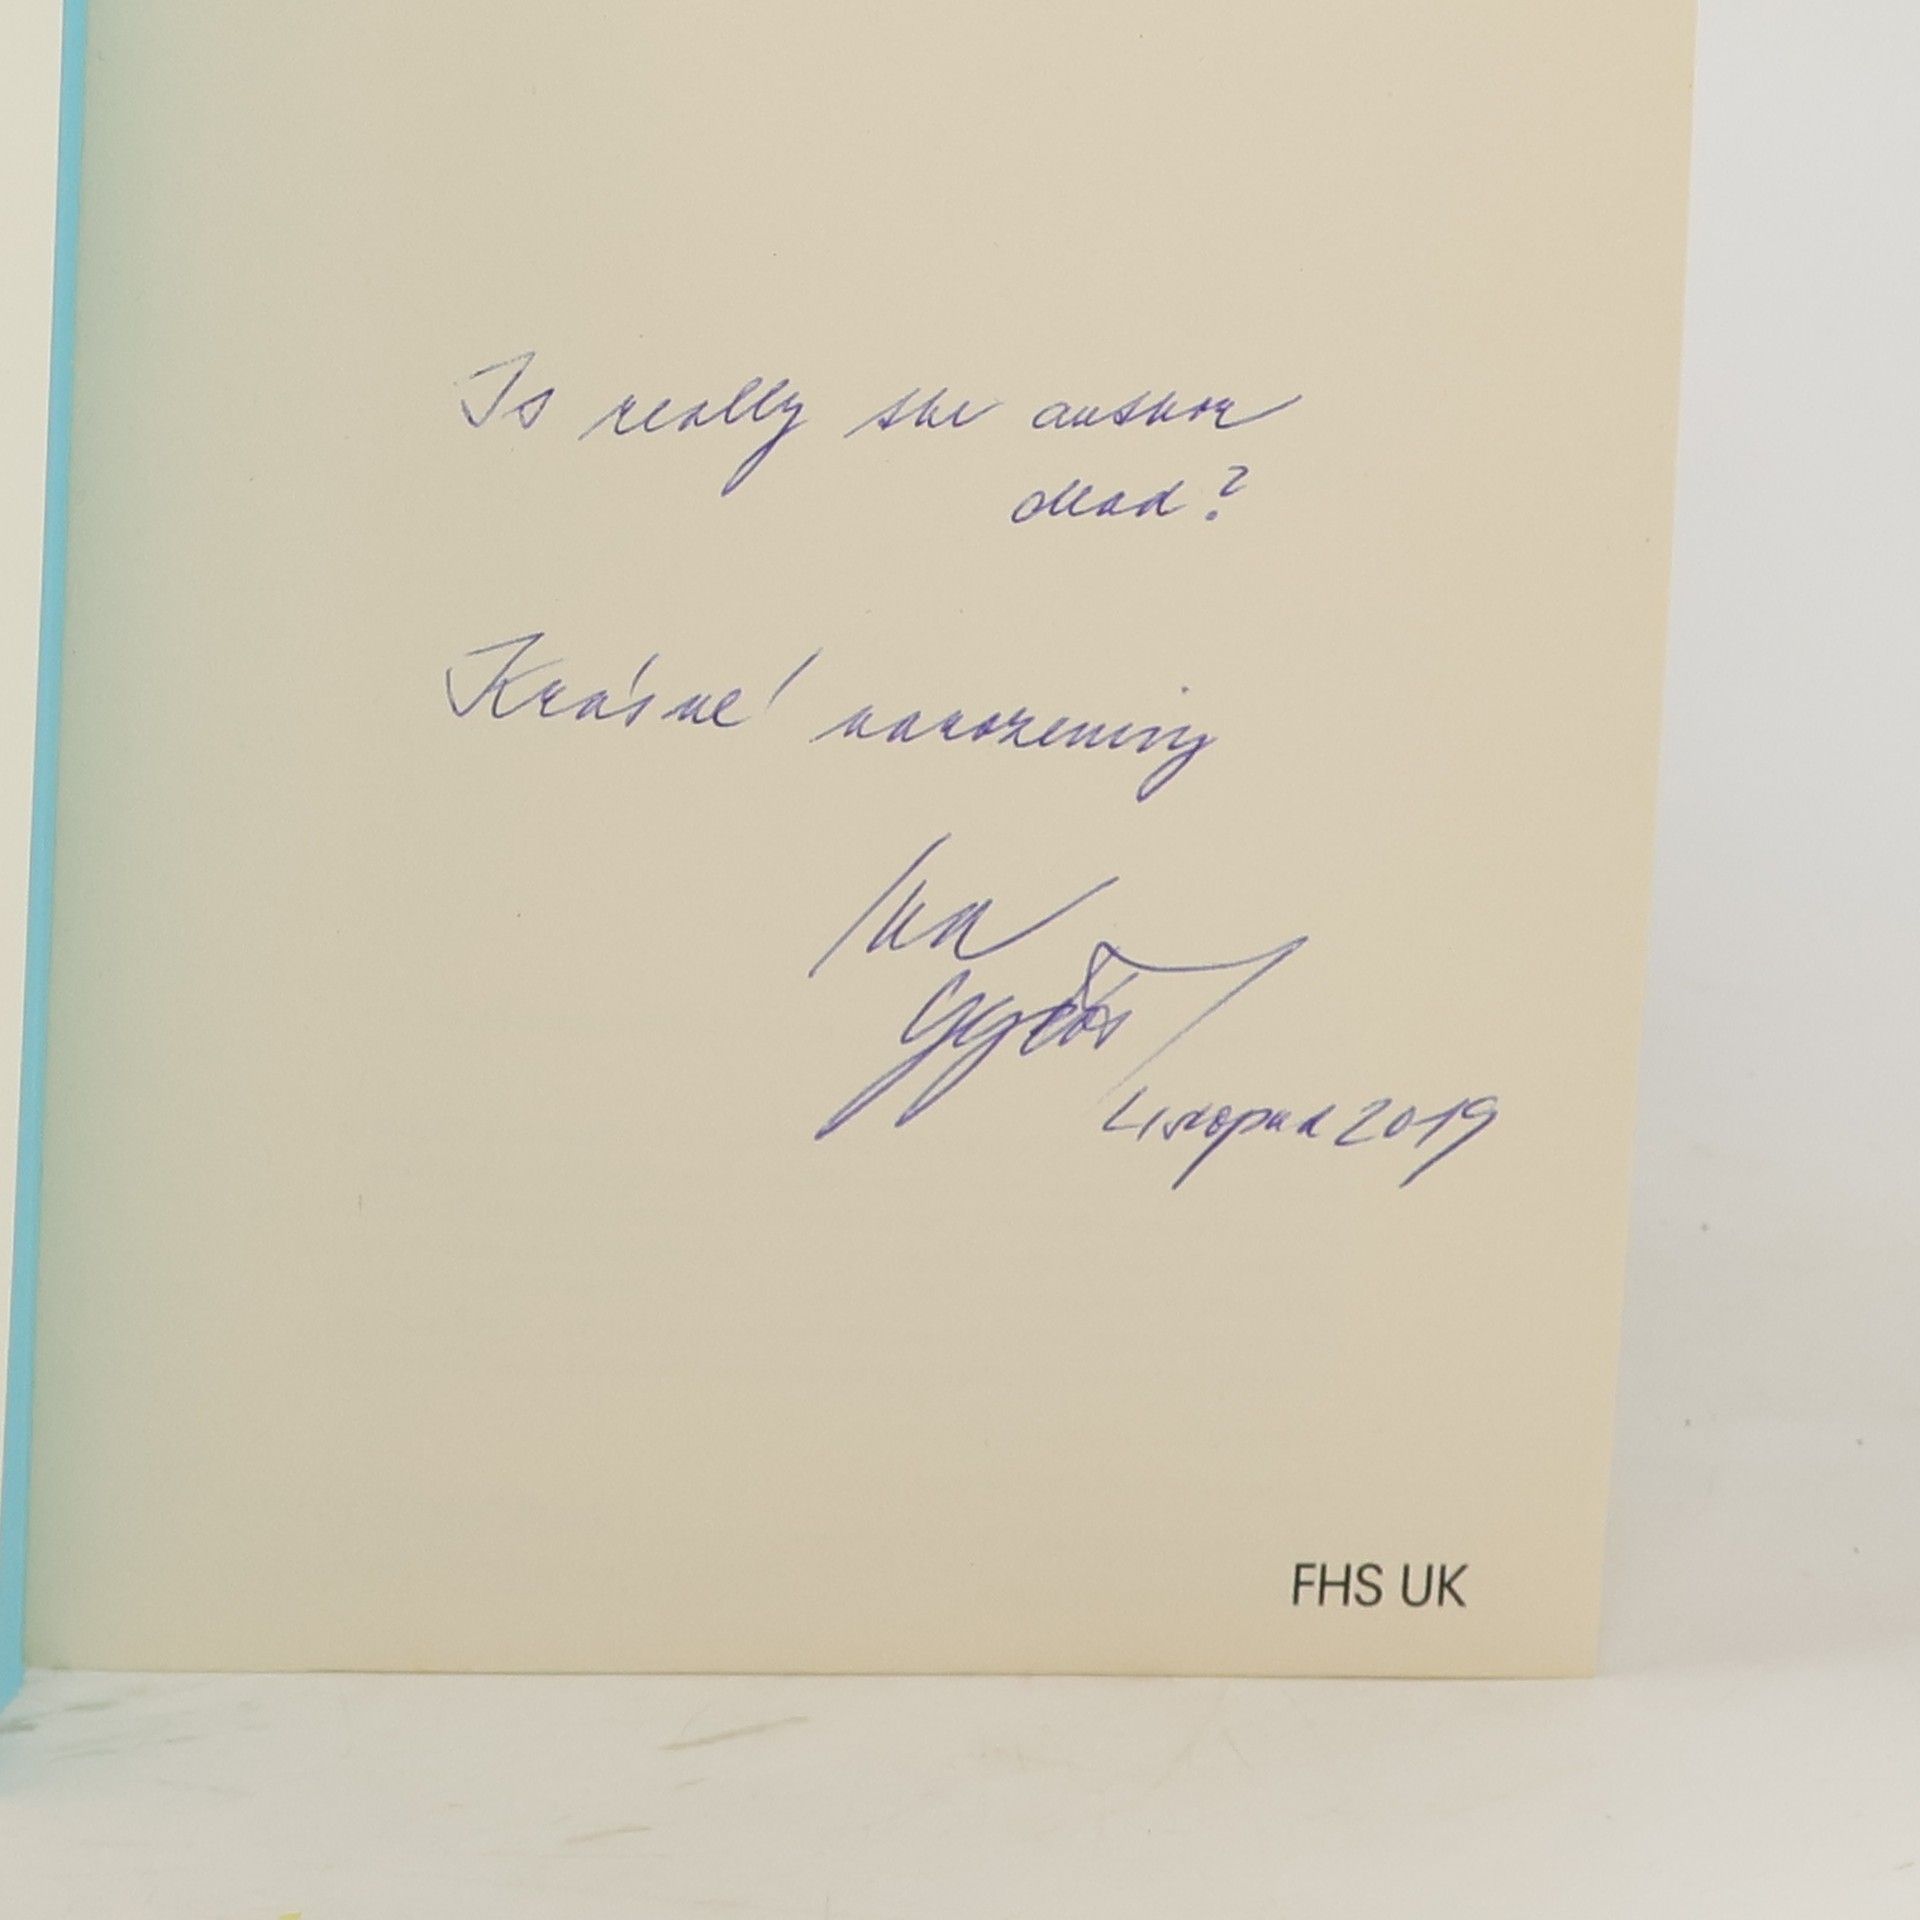 Is really the author
dead?
Krásné narozeniny
Listopad 2019
FHS UK